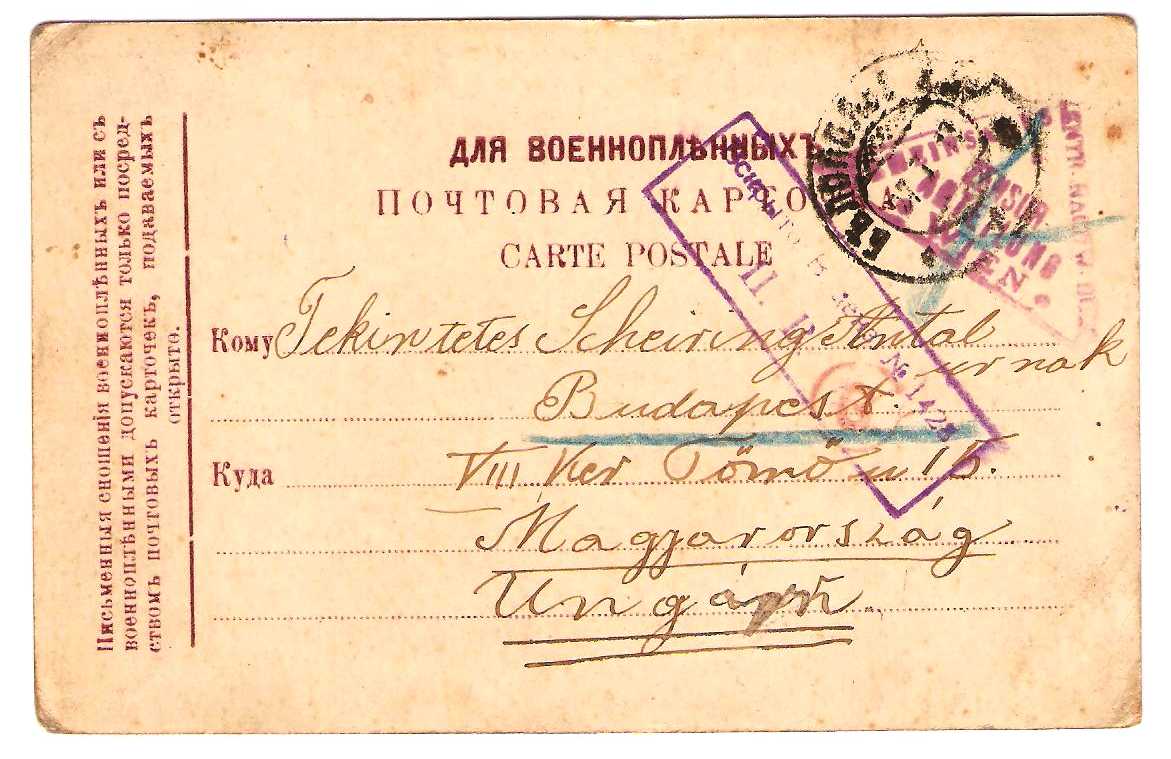 Письменныя сношенія военноплѣнныхъ или съ
военноплѣнными допускаются только посред-
ствомъ почтовыхъ карточекъ, подаваемыхъ
открыто.
ДЛЯ ВОЕННОПЛѢННЫХЪ
ПОЧТОВАЯ КАРТОЧКА
CARTE POSTALE
Кому Tekintetes Scheiring Antal
urnak
Budapest.
Куда VIII Ker Tömö u 15.
Magyarország
Ungárn.
№ 1423
ZENSUR-
ABTEILUNG
WIEN